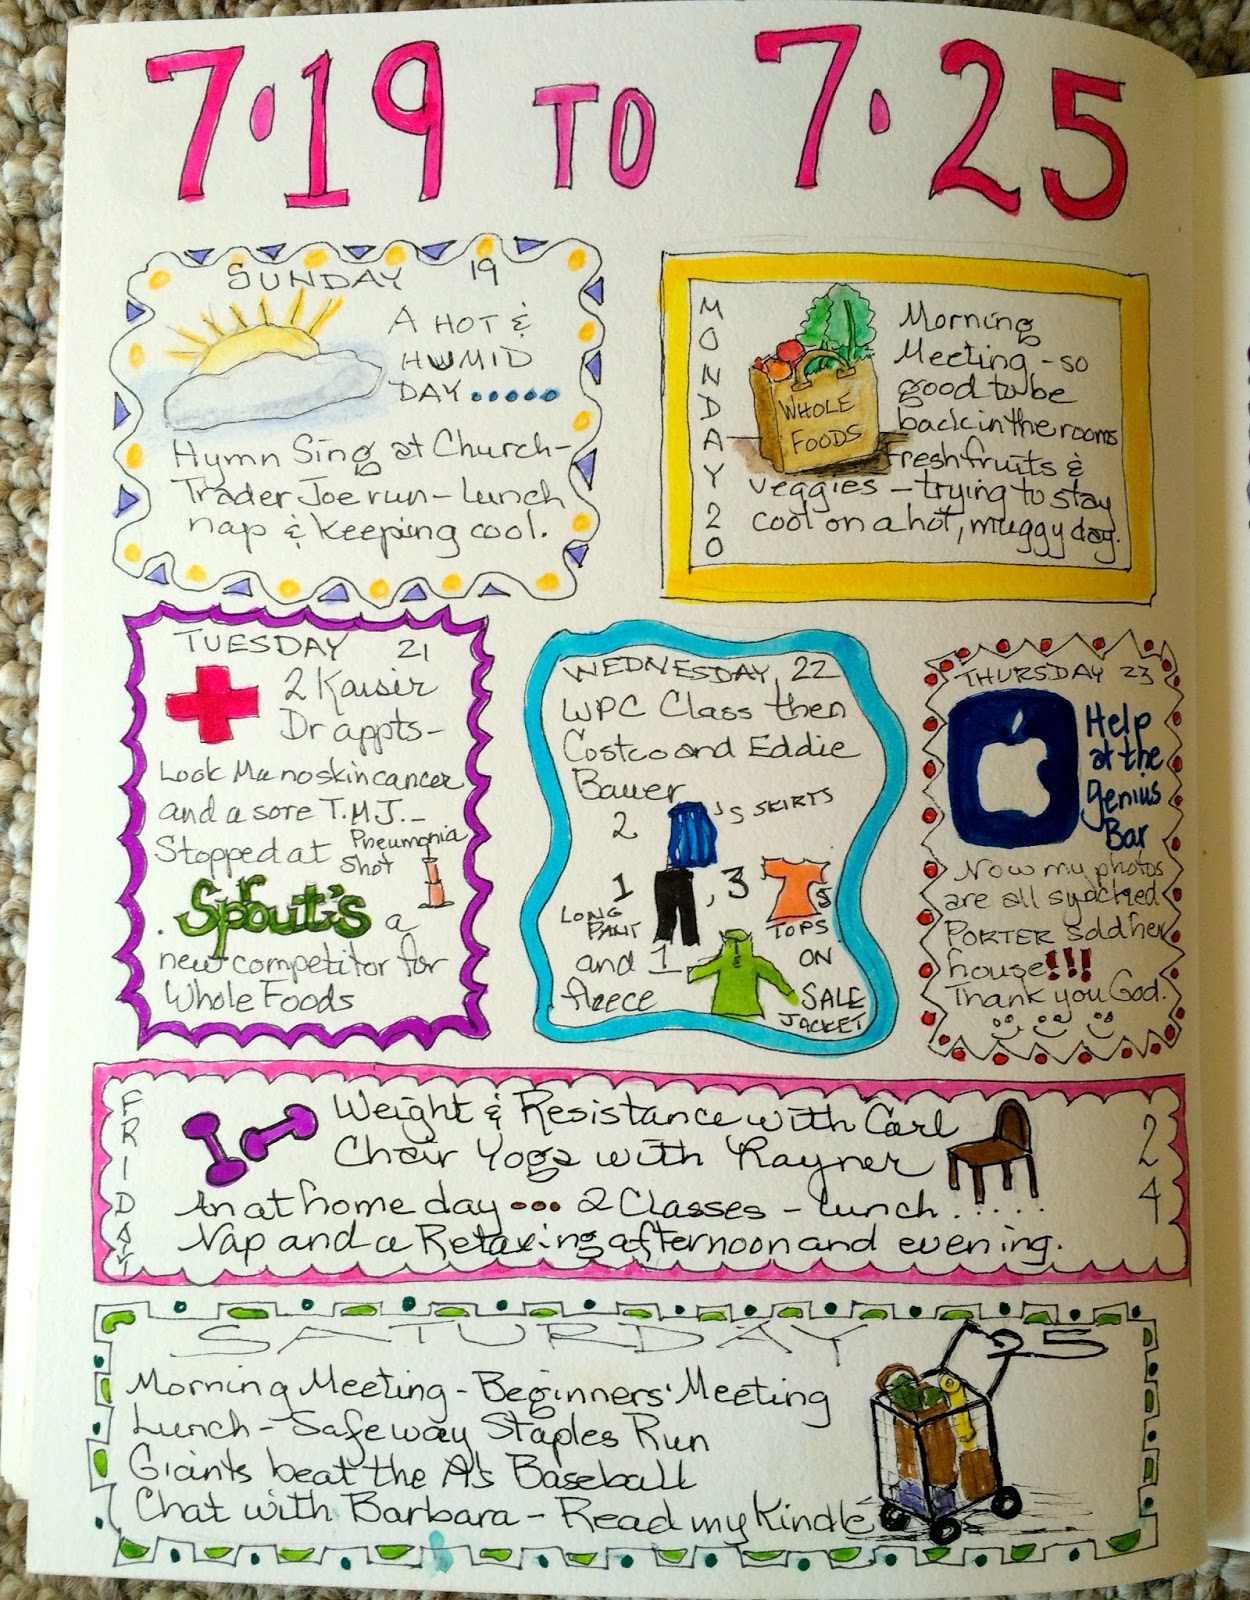 7·19 TO 7·25
SUNDAY 19
A HOT &
HUMID
DAY.....
Hymn Sing at Church-
Trader Joe run - Lunch
nap & keeping cool.
MONDAY 20
WHOLE
FOODS
Morning
Meeting - so
good to be
back in the rooms
Fresh fruits &
veggies - trying to stay
cool on a hot, muggy day.
TUESDAY 21
2 Kaiser
Dr appts-
Look Ma no skin cancer
and a sore T.M.J. -
Stopped at
Pneumonia
Shot
. Sprout's a
new competitor for
Whole Foods
WEDNESDAY, 22
WPC Class then
Costco and Eddie
Bauer's
2 SKIRTS
1 , 3 S
LONG
PANT
TOPS
and 1 ON
fleece SALE
JACKET
THURSDAY 23
Help
at the
Genius
Bar
Now my photos
are all synched
PORTER sold her
house!!!
Thank you God.
FRIDAY
24
Weight & Resistance with Carl
Chair Yoga with Rayner
An at home day ... 2 Classes - Lunch.....
Nap and a Relaxing afternoon and evening.
SATURDAY 25
Morning Meeting - Beginners' Meeting
Lunch - Safeway Staples Run
Giants beat the A's Baseball
Chat with Barbara - Read my Kindle